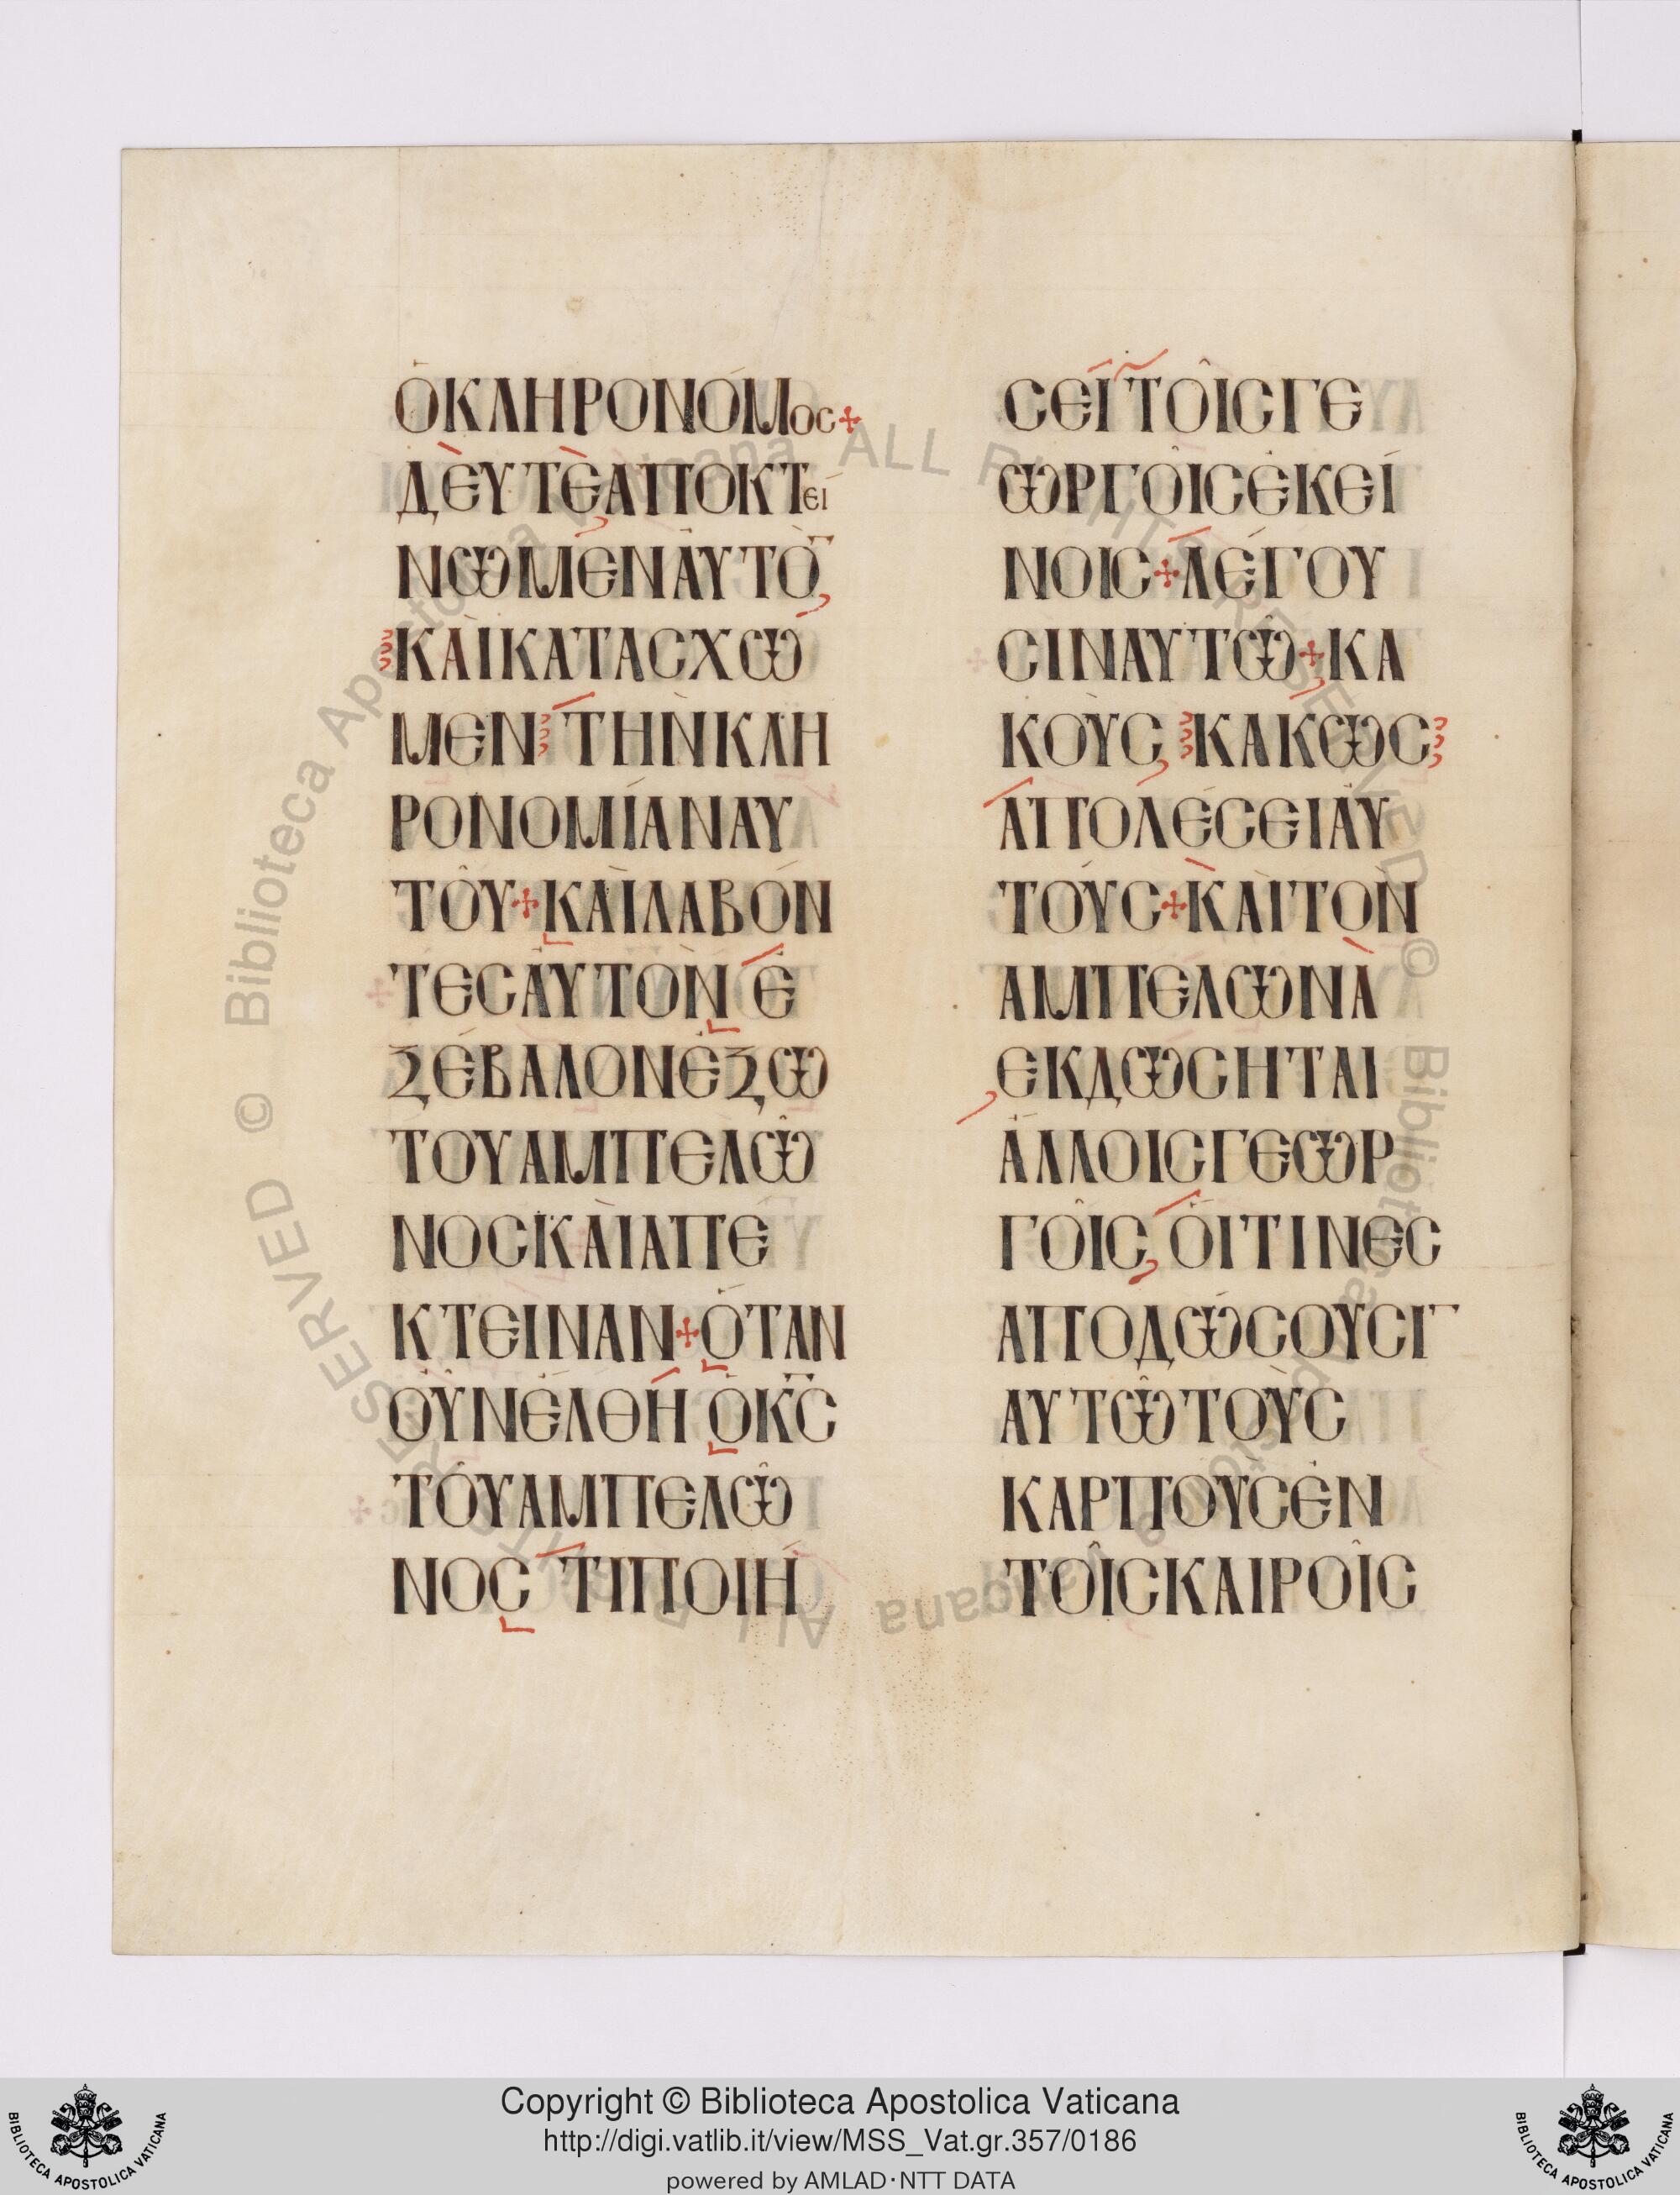 ὉΚΛΗΡΟΝΌΜος+
ΔΕῪΤΕἈΠΟΚΤεί
ΝΩΜΕΝἈΥΤῸ¯
ΚΑῚΚΑΤΑΣΧΩ
ΜΕΝΤΗΝΚΛΗ
ΡΟΝΟΜΊΑΝΑΥ
ΤΟῦ+ΚΑῚΛΑΒΌΝ
ΤΕΣἈΥΤῸΝἘ
ΞΈΒΑΛΟΝἘΞΩ
ΤΟΥΑΜΠΕΛΩ͂
ΝΟΣΚΑῚΑΠΕ
ΚΤΕΙΝΑΝ+ὍΤΑΝ
ΟΥ̓ΝἘΛΘΗὉΚ̅Σ̅
ΤΟῦΑΜΠΕΛΩ͂
ΝΟΣΤΙΠΟΙΉ
ΣΕΙΤΟῖΣΓΕ
ΩΡΓΟῖΣἘΚΕΊ
ΝΟΙΣ+ΛΈΓΟΥ
ΣΙΝΑΥΤΩ͂+ΚΑ
ΚΟῪΣΚΑΚΩΣ
ἈΠΟΛΈΣΕΙΑΥ
ΤΟΎΣ+ΚΑῚΤΟΝ
ΑΜΠΕΛΩΝᾺ
ΕΚΔΩΣΗΤΑΙ
ἌΛΛΟΙΣΓΕΩΡ
ΓΟῖΣΟἽΤΙΝΕΣ
ΑΠΟΔΏΣΟΥΣΙ¯
ΑΥΤΩ͂ΤΟῪΣ
ΚΑΡΠΟῪΣἘΝ
ΤΟῖΣΚΑΙΡΟῖΣ
Copyright © Biblioteca Apostolica Vaticana
http://digi.vatlib.it/view/MSS_Vat.gr.357/0186
powered by AMLAD·NTT DATA
BIBLIOTECA APOSTOLICA VATICANA
BIBLIOTECA APOSTOLICA VATICANA